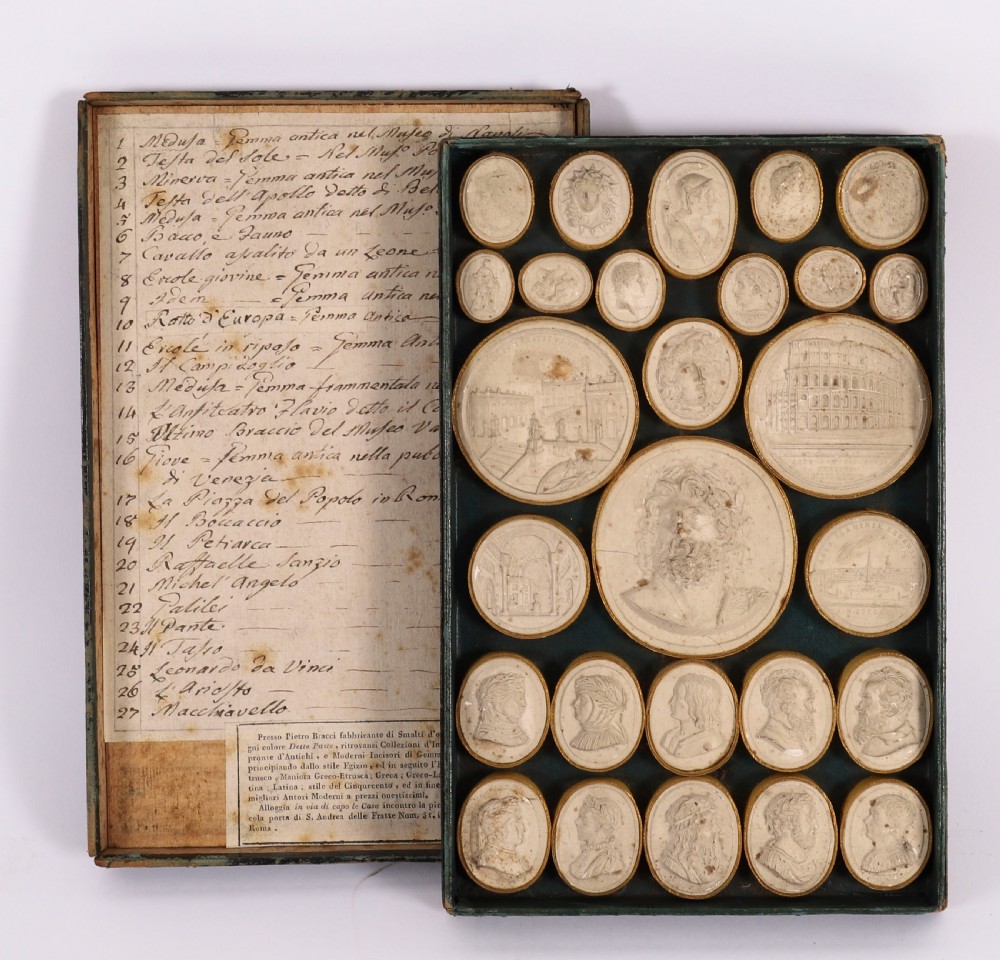 1 Medusa = Gemma antica nel Museo di
2 Testa del Sole = Nel Mus.o
3 Minerva = Gemma antica nel
4 Testa dell'Apollo detto di Bel
5 Medusa = Gemma antica nel Mus.o
6 Bacco, e Fauno
7 Cavallo assalito da un Leone
8 Ercole giovine = Gemma antica
9 Idem = Gemma antica
10 Ratto d'Europa = Gemma Antica
11 Ercole in riposo = Gemma Ant
12 Il Campidoglio
13 Medusa = Gemma frammentata
14 L'Anfiteatro Flavio detto il Co
15 Ultimo Braccio del Museo Va
16 Giove = Gemma antica nella pubb
di Venezia
17 La Piazza del Popolo in Rom
18 Il Boccaccio
19 Il Petrarca
20 Raffaelle Sanzio
21 Michel'Angelo
22 Galilei
23 Il Dante
24 Il Tasso
25 Leonardo da Vinci
26 L'Ariosto
27 Macchiavello
Presso Pietro Bracci fabbricante di Smalti d'o
gni colore Detto Paste, ritrovansi Collezioni d'Im
pronte d'Antichi, e Moderni Incisori di Gemm
principiando dallo stile Egizio, ed in seguito l'E
trusco, Maniera Greco-Etrusca; Greca; Greco-La
tina; Latina; stile del Cinquecento, ed in fine
migliori Autori Moderni a prezzi onestissimi.
Alloggia in via di capo le Case incontro la pic
cola porta di S. Andrea delle Fratte Num. 51.
Roma.